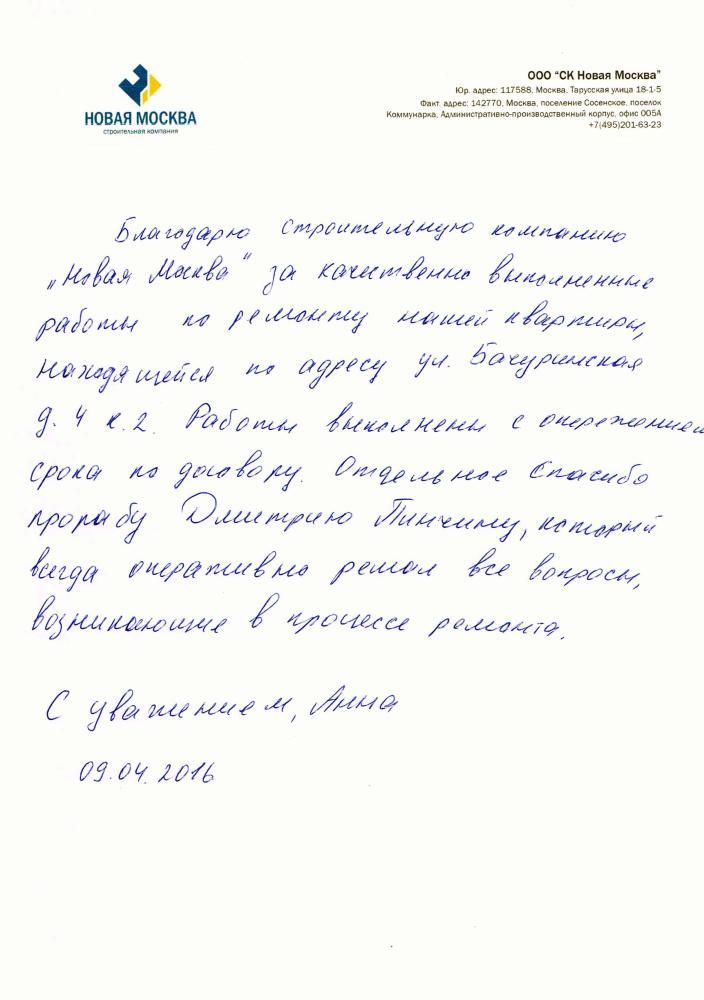 НОВАЯ МОСКВА
строительная компания
ООО "СК Новая Москва"
Юр. адрес: 117588, Москва, Тарусская улица 18-1-5
Факт. адрес: 142770, Москва, поселение Сосенское, поселок
Коммунарка, Административно-производственный корпус, офис 005А
+7(495)201-63-23
Благодарю строительную компанию
„Новая Москва" за качественно выполненные
работы по ремонту нашей квартиры,
находящейся по адресу ул. Бачуринская
д. 4 к. 2. Работы выполнены с опережением
срока по договору. Отдельное спасибо
прорабу Дмитрию Пинчину, который
всегда оперативно решал все вопросы,
возникающие в процессе ремонта.
С уважением, Анна
09.04.2016